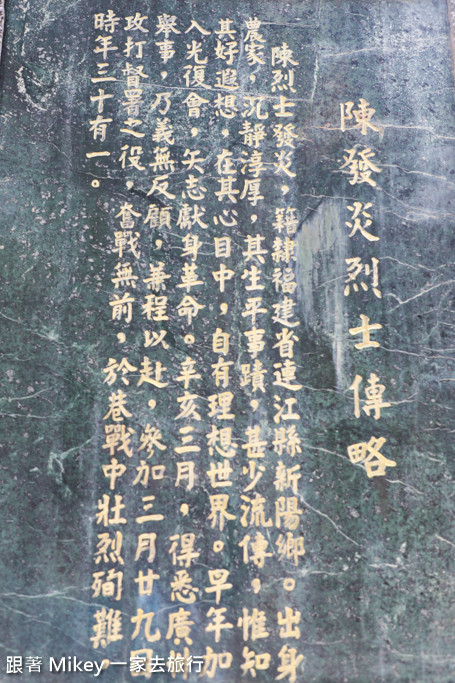 陳發炎烈士傳略
陳烈士發炎，籍隸福建省連江縣新陽鄉。出身
農家，沉靜淳厚，其生平事蹟，甚少流傳，惟知
其好遐想，在其心目中，自有理想世界。早年加
入光復會，矢志獻身革命。辛亥三月，得悉廣州
舉事，乃義無反顧，兼程以赴，參加三月廿九日
攻打督署之役，奮戰無前，於巷戰中壯烈殉難，
時年三十有一。
跟著 Mikey 一家去旅行